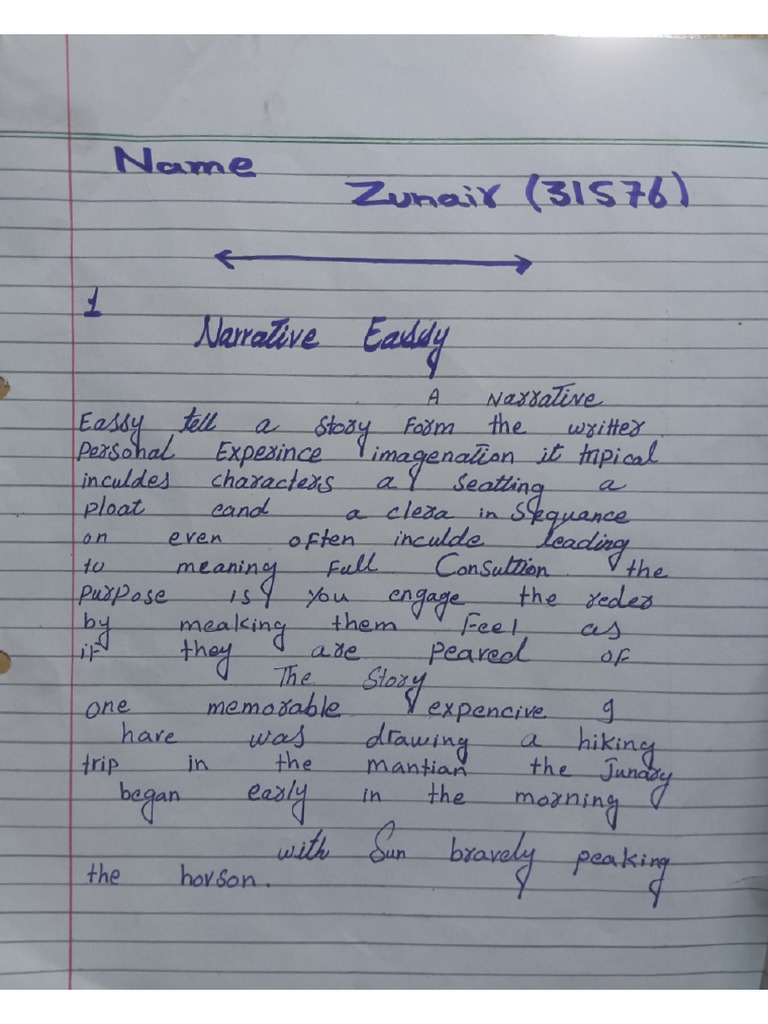 Name
Zunair (31576)
1
Narrative Eassy
A Narrative
Eassy tell a story Form the writter
Personal Experince imagenation it tripical
inculdes characters a seatting a
ploat cand a clera in Sequance
on even often inculde leading
to meaning Full Consultion the
purpose is you engage the reder
by meaking them Feel as
if they are peared of
The Story
one memorable expencive I
have was drawing a hiking
trip in the mantian the Junary
began early in the morning
with Sun bravely peaking
the horson.